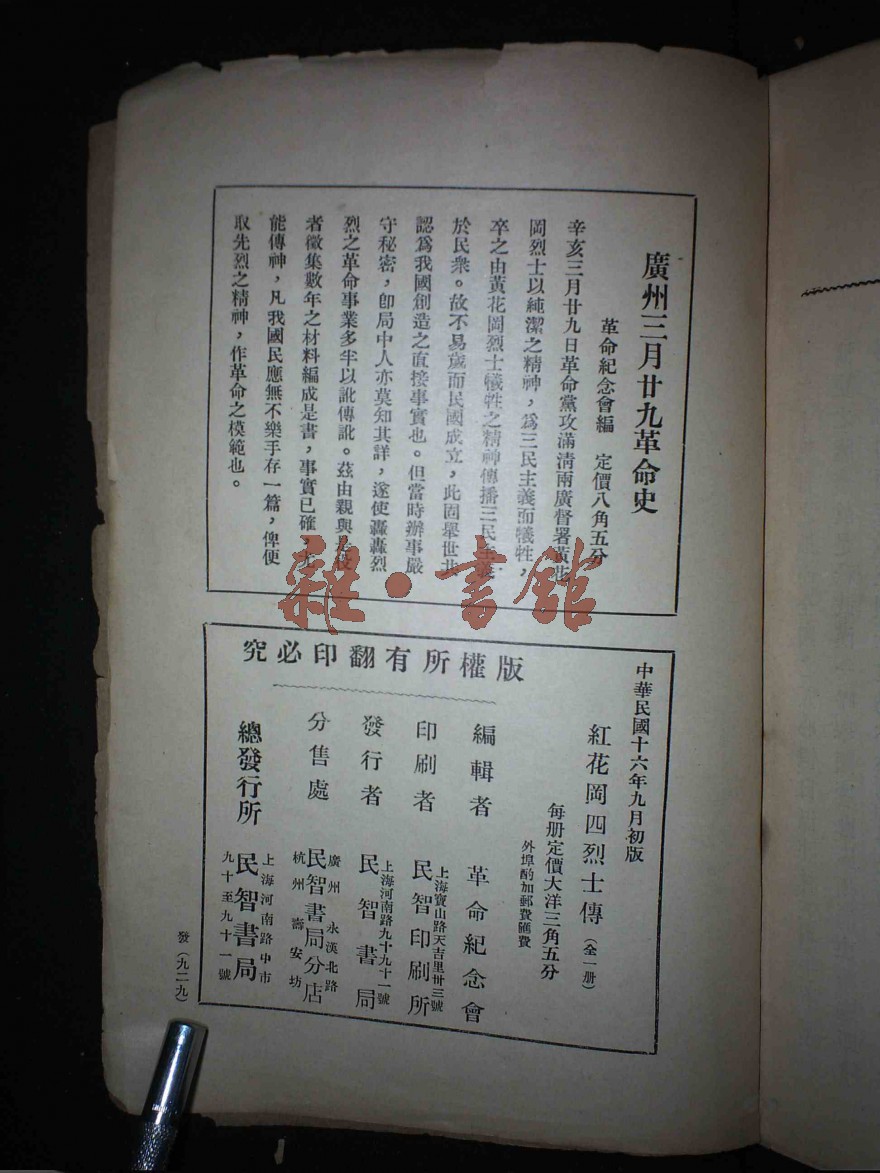 廣州三月廿九革命史
革命紀念會編　定價八角五分
辛亥三月廿九日革命黨攻滿清兩廣督署黃花
岡烈士以純潔之精神，爲三民主義而犧牲，
卒之由黃花岡烈士犧牲之精神傳播三民主義
於民衆。故不易歲而民國成立，此固舉世共
認爲我國創造之直接事實也。但當時辦事嚴
守秘密，卽局中人亦莫知其詳，遂使轟轟烈
烈之革命事業多半以訛傳訛。茲由親與是役
者徵集數年之材料編成是書，事實已確，尤
能傳神，凡我國民應無不樂手存一篇，俾便
取先烈之精神，作革命之模範也。
雜·書館
版權所有翻印必究
中華民國十六年九月初版
紅花岡四烈士傳（全一册）
每册定價大洋三角五分
外埠酌加郵費匯費
編輯者　革命紀念會
印刷者　上海寶山路天吉里卅三號
民智印刷所
發行者　上海河南路九十九十一號
民智書局
分售處　廣州　永漢北路
民智書局分店
杭州　壽安坊
總發行所　上海河南路中市
民智書局
九十至九十一號
發（九二九）